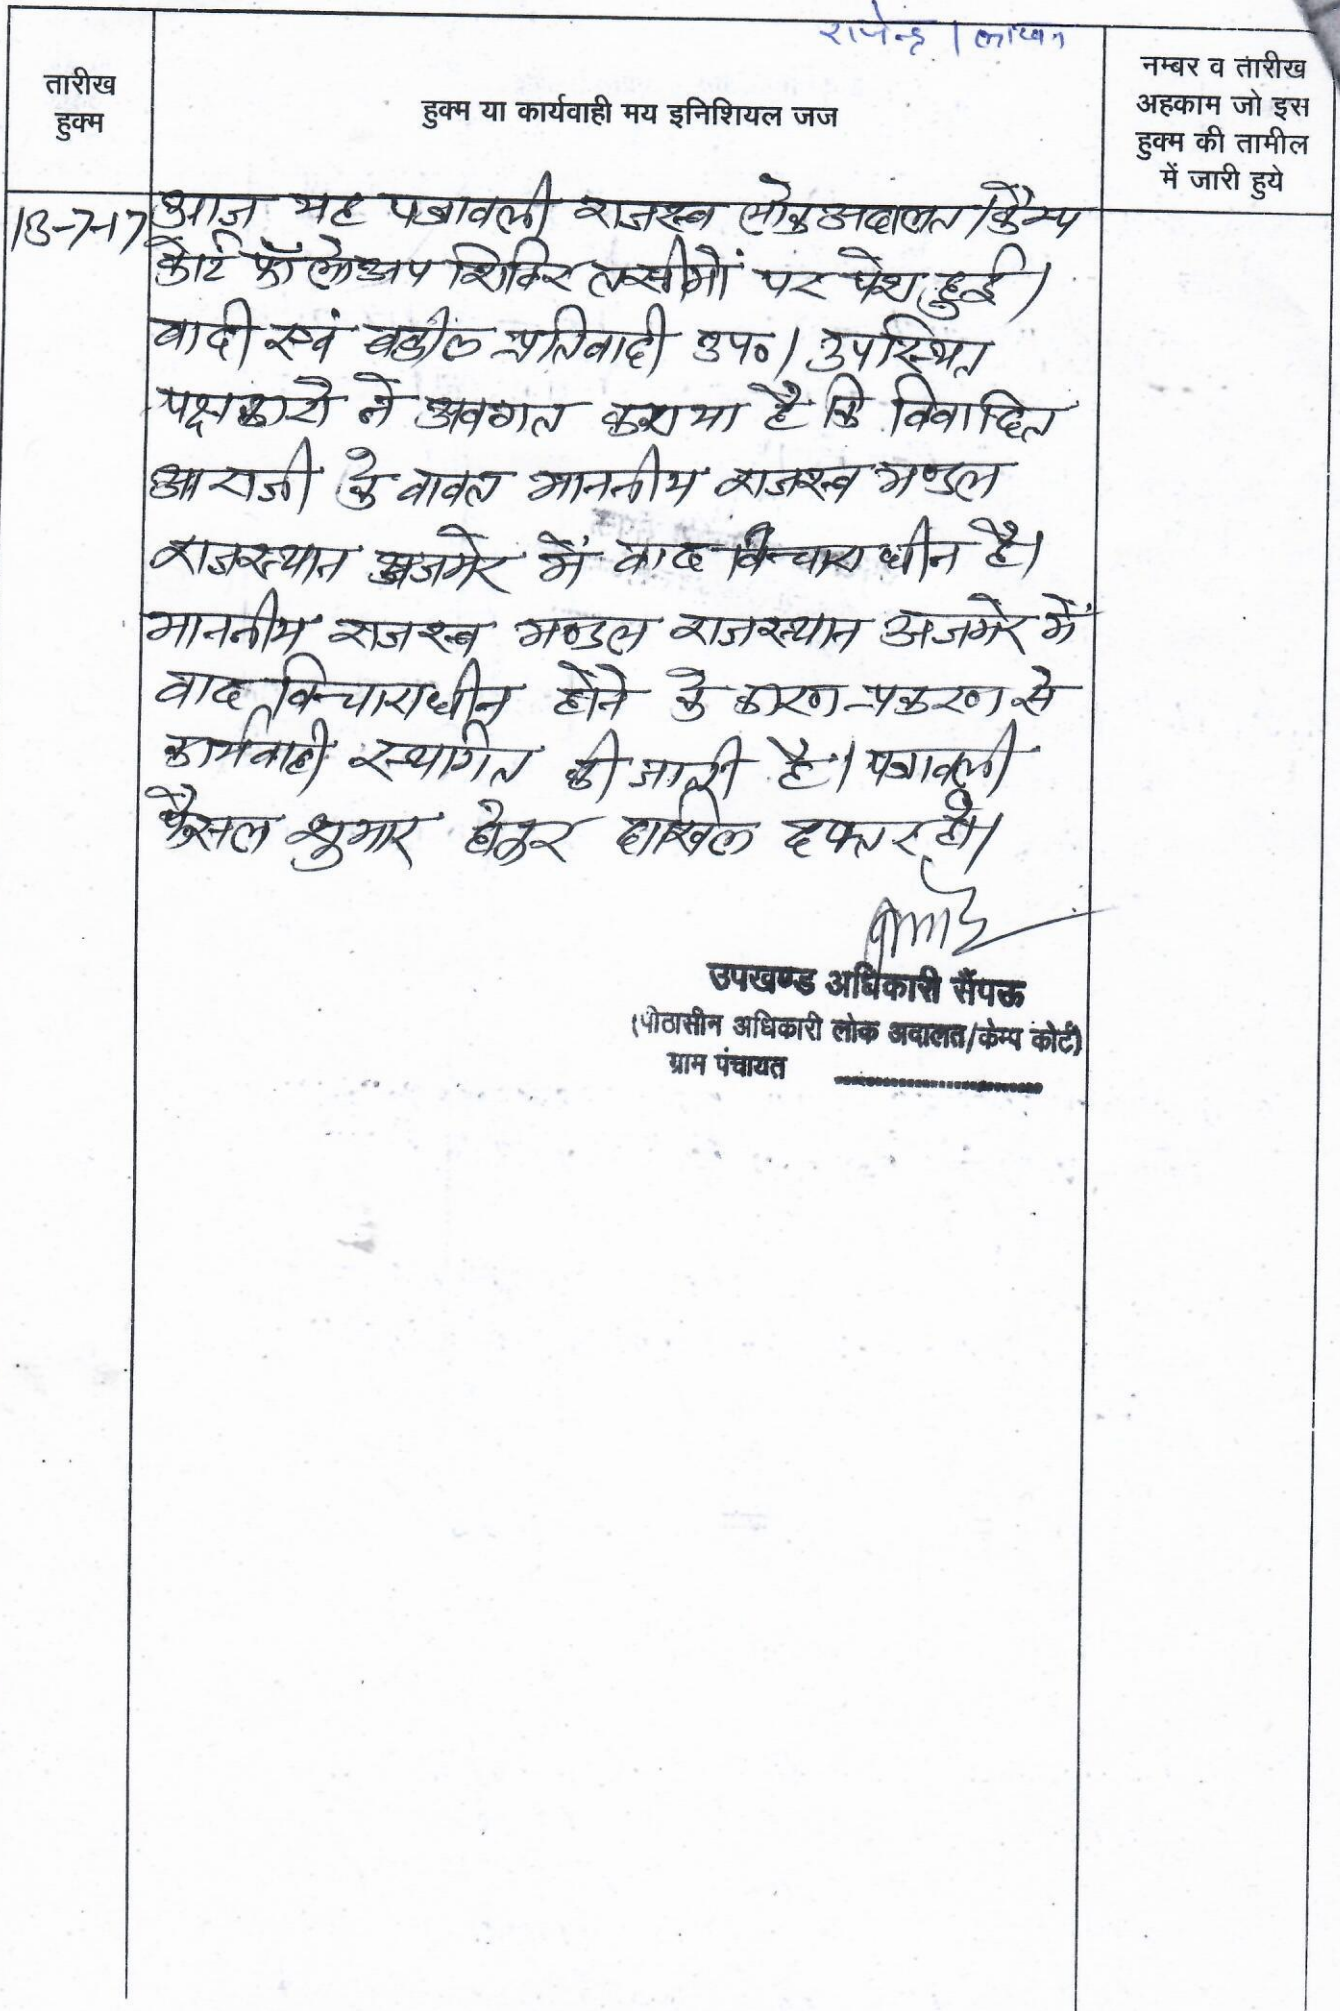 राजेन्द्र / लाखन
तारीख
हुक्म
हुक्म या कार्यवाही मय इनिशियल जज
नम्बर व तारीख
अहकाम जो इस
हुक्म की तामील
में जारी हुये
13-7-17
आज यह पत्रावली राजस्व लोक अदालत/कैम्प
कोर्ट फॉलोअप शिविर तसीमों पर पेश हुई।
वादी एवं वकील प्रतिवादी उप०। उपस्थित
पक्षकारो ने अवगत कराया है कि विवादित
आराजी के वावत माननीय राजस्व मण्डल
राजस्थान अजमेर में वाद विचाराधीन है।
माननीय राजस्व मण्डल राजस्थान अजमेर में
वाद विचाराधीन होने के कारण प्रकरण मे
कार्यवाही स्थागित की जाती है। पत्रावली
फैसल शुमार होकर दाखिल दफ्तर हो।
उपखण्ड अधिकारी सैंपऊ
(पीठासीन अधिकारी लोक अदालत/केम्प कोर्ट)
ग्राम पंचायत